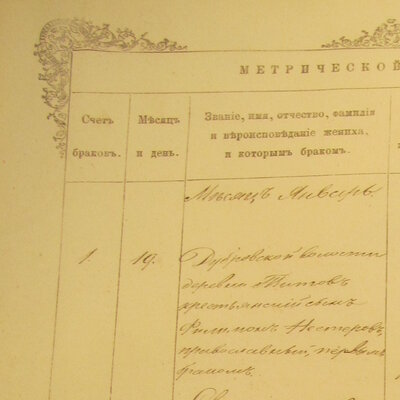 МЕТРИЧЕСКОЙ
Счетъ браковъ.
Мѣсяцъ и день.
Званіе, имя, отчество, фамилія
и вѣроисповѣданіе жениха,
и которымъ бракомъ.
Мѣсяцъ Январь.
1. 19. Дубровской волости
деревни Титов
крестьянскій сынъ
Филимонъ Нестеровъ,
православный, первымъ
бракомъ.